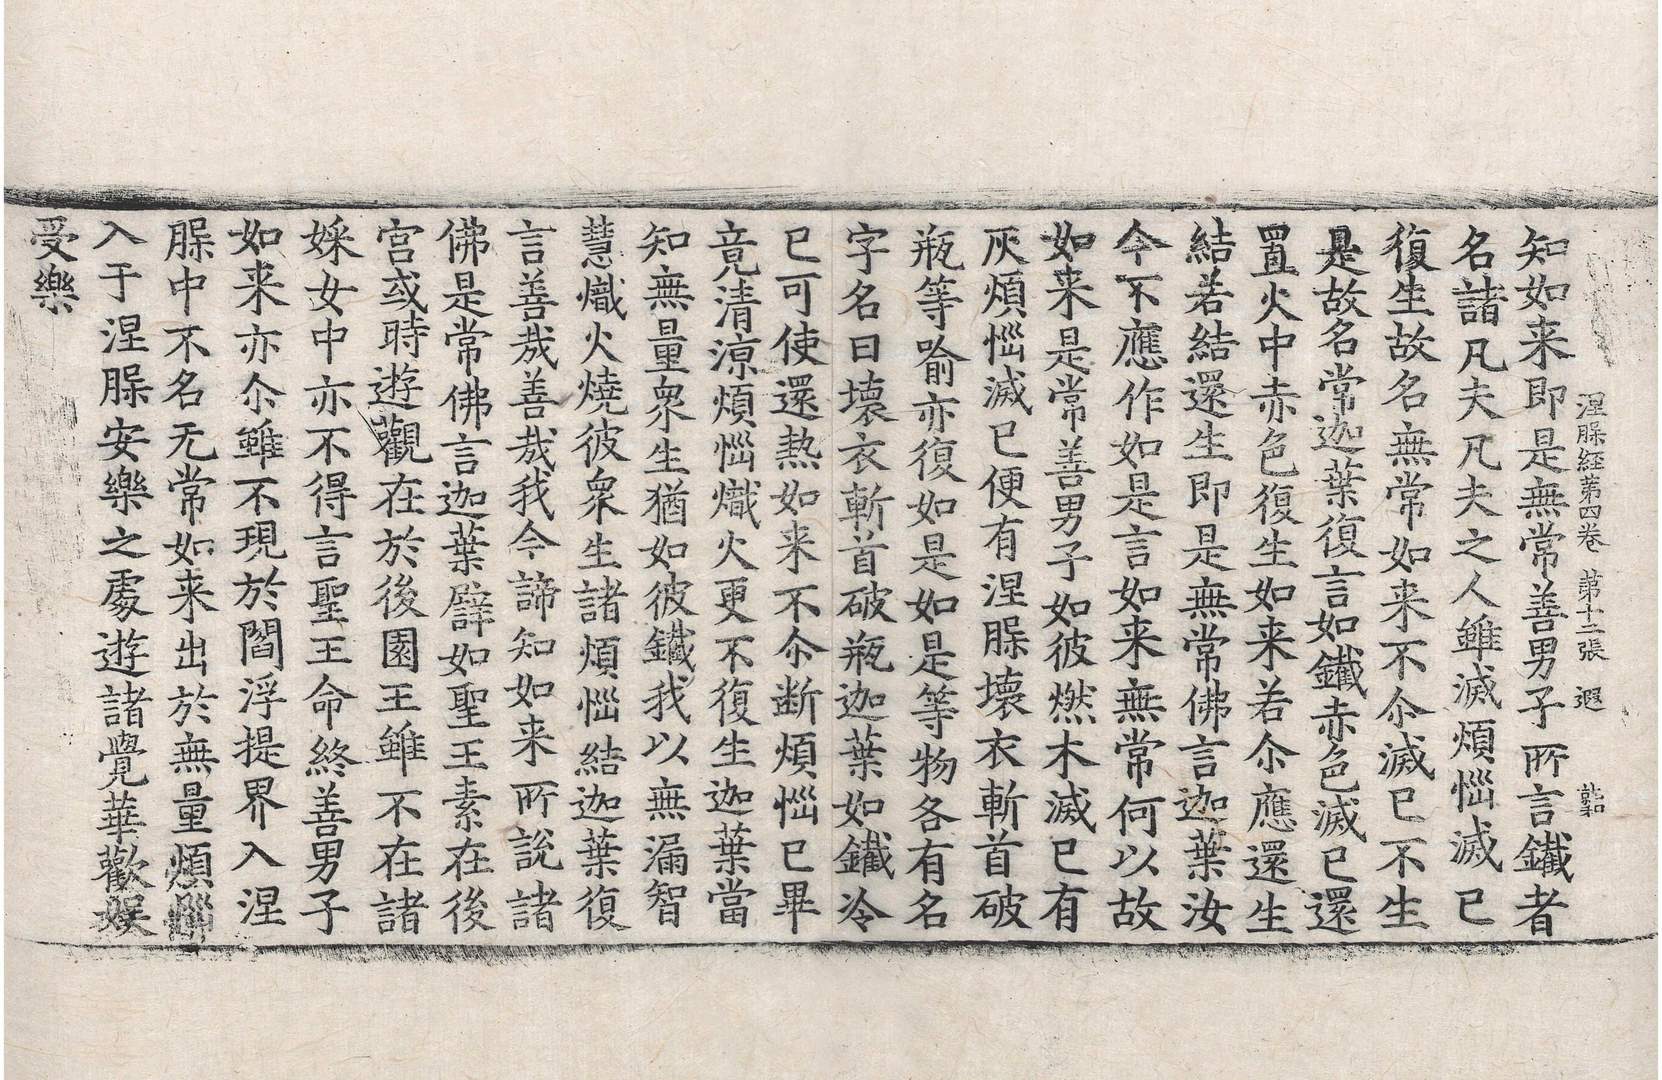 涅槃経第四卷 第十二張 遐
知如来即是無常善男子所言鐵者
名諸凡夫凡夫之人雖滅煩惱滅已
復生故名無常如来不尒滅已不生
是故名常迦葉復言如鐵赤色滅已還
置火中赤色復生如来若尒應還生
結若結還生即是無常佛言迦葉汝
今不應作如是言如来無常何以故
如来是常善男子如彼燃木滅已有
灰煩惱滅已便有涅槃壞衣斬首破
瓶等喻亦復如是如是等物各有名
字名曰壞衣斬首破瓶迦葉如鐵冷
已可使還熱如来不尒断煩惱已畢
竟清涼煩惱熾火更不復生迦葉當
知無量衆生猶如彼鐵我以無漏智
慧熾火燒彼衆生諸煩惱結迦葉復
言善哉善哉我今諦知如来所說諸
佛是常佛言迦葉譬如聖王素在後
宮或時遊觀在於後園王雖不在諸
婇女中亦不得言聖王命終善男子
如来亦尒雖不現於閻浮提界入涅
槃中不名无常如来出於無量煩惱
入于涅槃安樂之處遊諸覺華歡娛
受樂